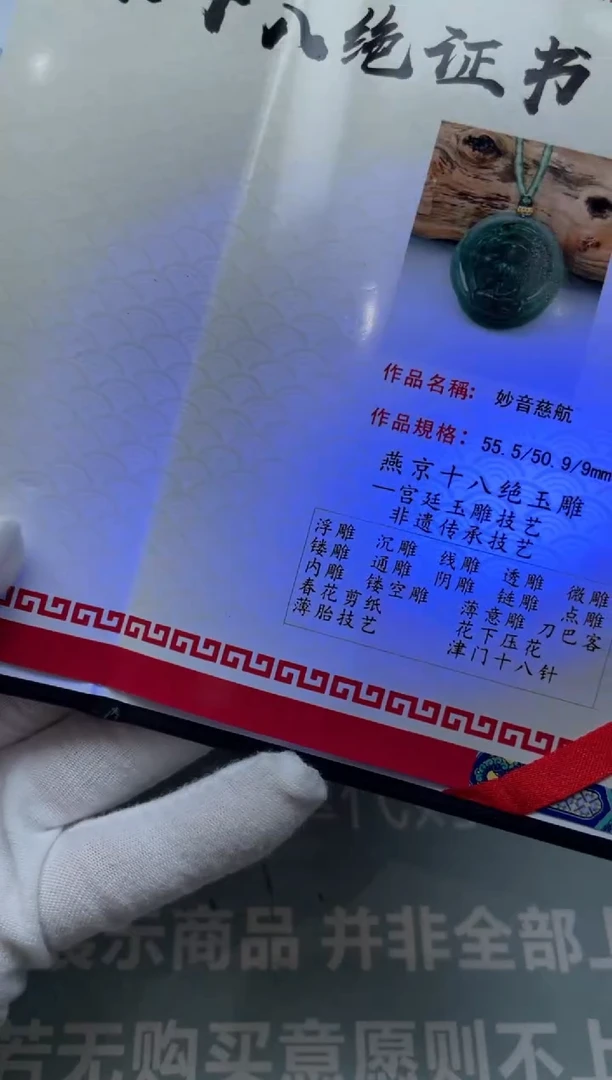 十八绝证书
作品名稱: 妙音慈航
作品規格: 55.5/50.9/9mm
燕京十八绝玉雕
一宫廷玉雕技艺
非遗传承技艺
浮雕 沉雕 线雕 透雕 微雕
镂雕 通雕 阴雕 链雕 点雕
内雕 镂空雕 薄意雕 刀巴客
春花剪纸 花下压花
薄胎技艺 津门十八针
代购
展示商品 并非全部上
若无购买意愿则不上